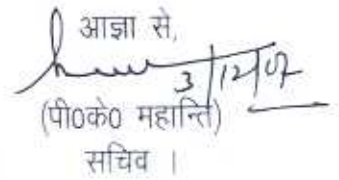 आज्ञा से,
3/12/07
(पी0के0 महान्ति)
सचिव ।